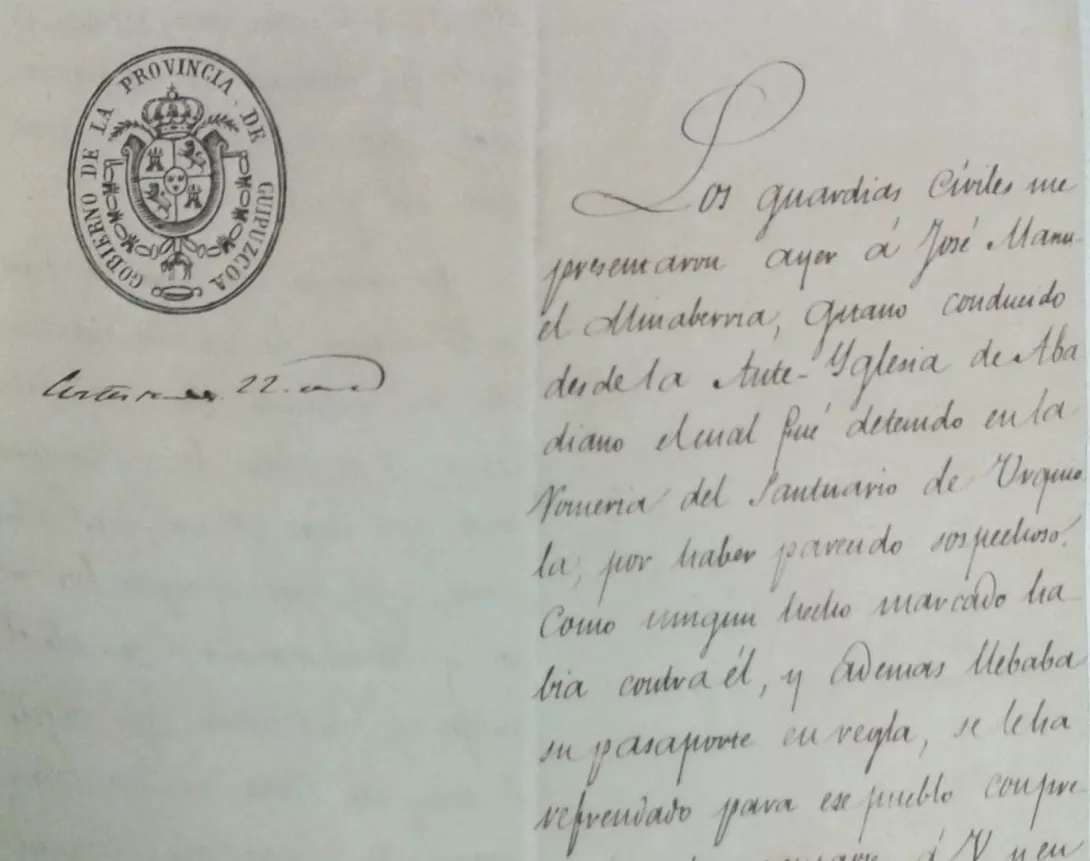 GOBIERNO DE LA PROVINCIA DE GUIPUZCOA
22.
Los guardias Civiles me
presentaron ayer á José Manu
el Minaberria, Gitano conducido
desde la Ante-Yglesia de Aba
diano el cual fué detenido en la
del Santuario de Urquio
la, por haber parecido sospechoso.
Como ningun hecho marcado ha
bia contra él, y ademas llebaba
su pasaporte en regla, se le ha
refrendado para ese pueblo con pre
á V. y en